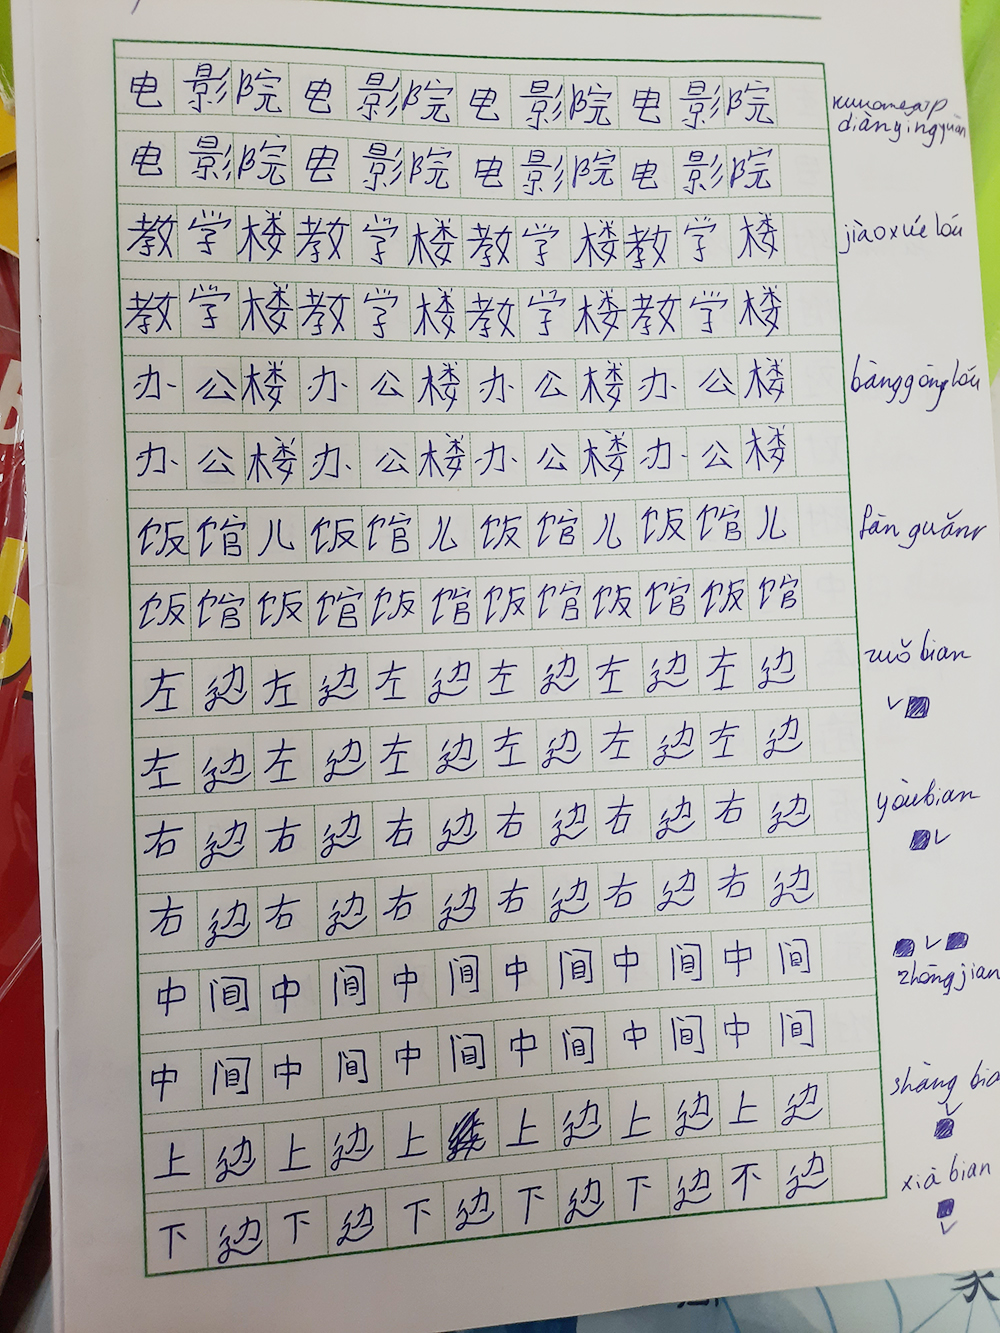 电影院电影院电影院电影院 кинотеатр
diànyǐngyuàn
电影院电影院电影院电影院
教学楼教学楼教学楼教学楼 jiàoxué lóu
教学楼教学楼教学楼教学楼
办公楼办公楼办公楼办公楼 bàngōnglóu
办公楼办公楼办公楼办公楼
饭馆儿饭馆儿饭馆儿饭馆儿 fàn guǎnr
饭馆饭馆饭馆饭馆饭馆饭馆
左边左边左边左边左边左边 zuǒ bian
左边左边左边左边左边左边
右边右边右边右边右边右边 yòubian
右边右边右边右边右边右边
中间中间中间中间中间中间 zhōngjian
中间中间中间中间中间中间
上边上边上上边上边上边 shàng bia
下边下边下边下边下边不边 xià bian